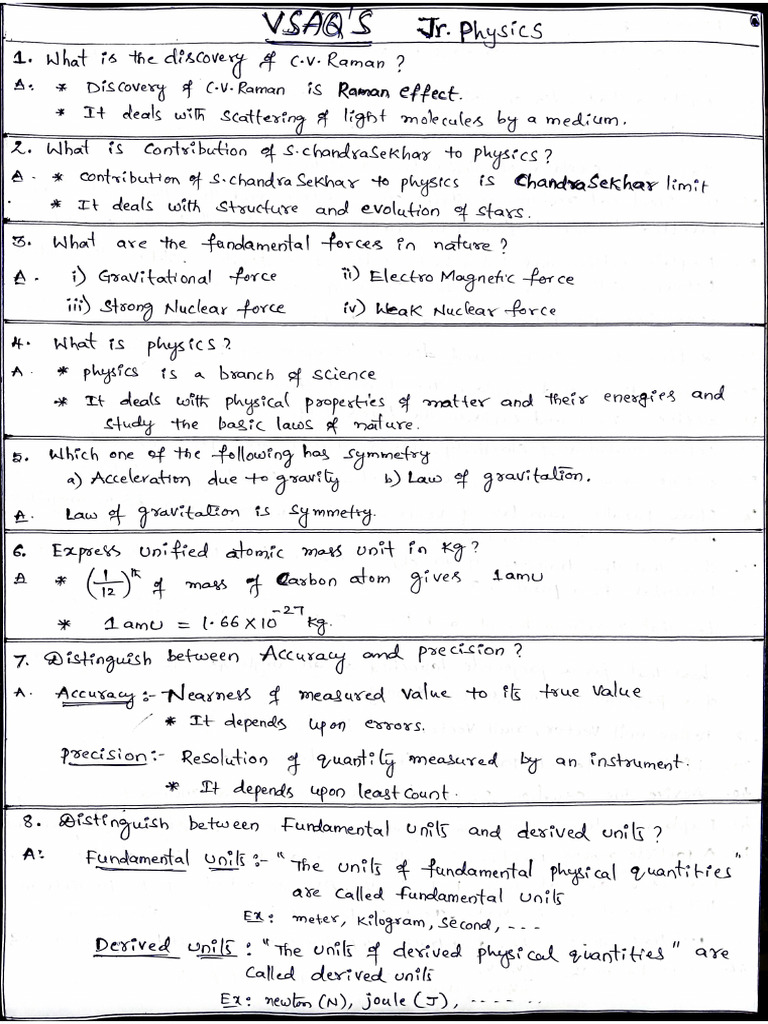 VSAQ'S Jr. Physics
1. What is the discovery of C.V. Raman ?
A: * Discovery of C.V. Raman is Raman effect.
* It deals with scattering of light molecules by a medium.
2. What is contribution of S. chandraSekhar to physics ?
A. * contribution of S. chandraSekhar to physics is ChandraSekhar limit
* It deals with structure and evolution of stars.
3. What are the fundamental forces in nature ?
A. i) Gravitational force ii) Electro Magnetic force
iii) Strong Nuclear force iv) Weak Nuclear force
4. What is physics ?
A. * physics is a branch of science
* It deals with physical properties of matter and their energies and
study the basic laws of nature.
5. Which one of the following has symmetry
a) Acceleration due to gravity b) Law of gravitation.
A. Law of gravitation is symmetry.
6. Express unified atomic mass unit in kg ?
A * (1/12)th of mass of Carbon atom gives 1amu
* 1 amu = 1.66 x 10^-27 kg.
7. Distinguish between Accuracy and precision ?
A. Accuracy :- Nearness of measured value to its true value
* It depends upon errors.
Precision :- Resolution of quantity measured by an instrument.
* It depends upon least count.
8. Distinguish between Fundamental units and derived units ?
A: Fundamental units :- "The units of fundamental physical quantities"
are called fundamental units
Ex : meter, kilogram, second, ---
Derived units : "The units of derived physical quantities" are
called derived units
Ex : newton (N), joule (J), -----